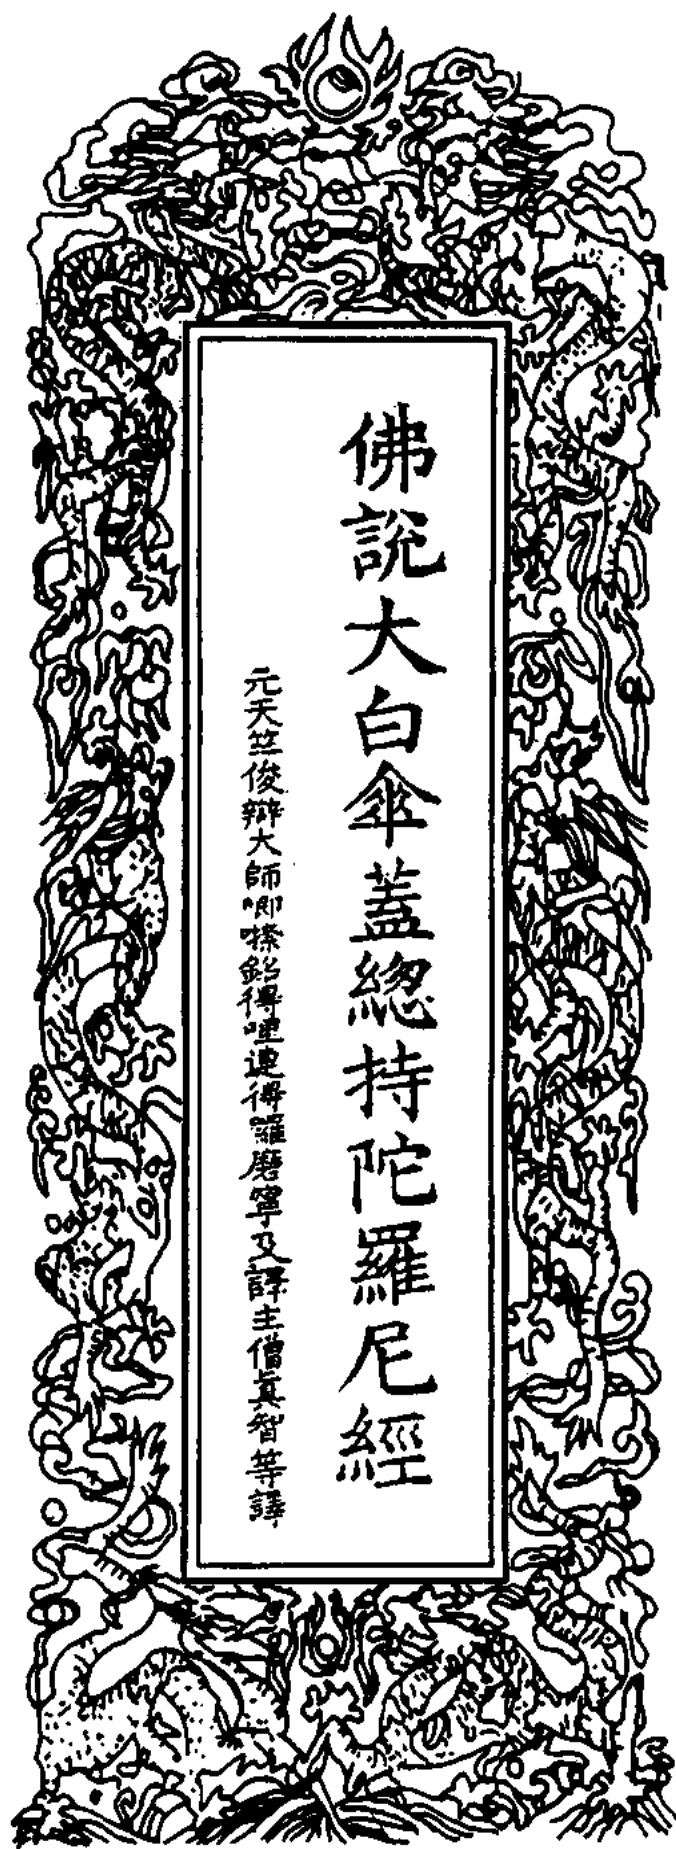 佛說大白傘蓋緫持陀羅尼經
元天竺俊辯大師唧㗚銘得哩連得囉磨寧及譯主僧眞智等譯